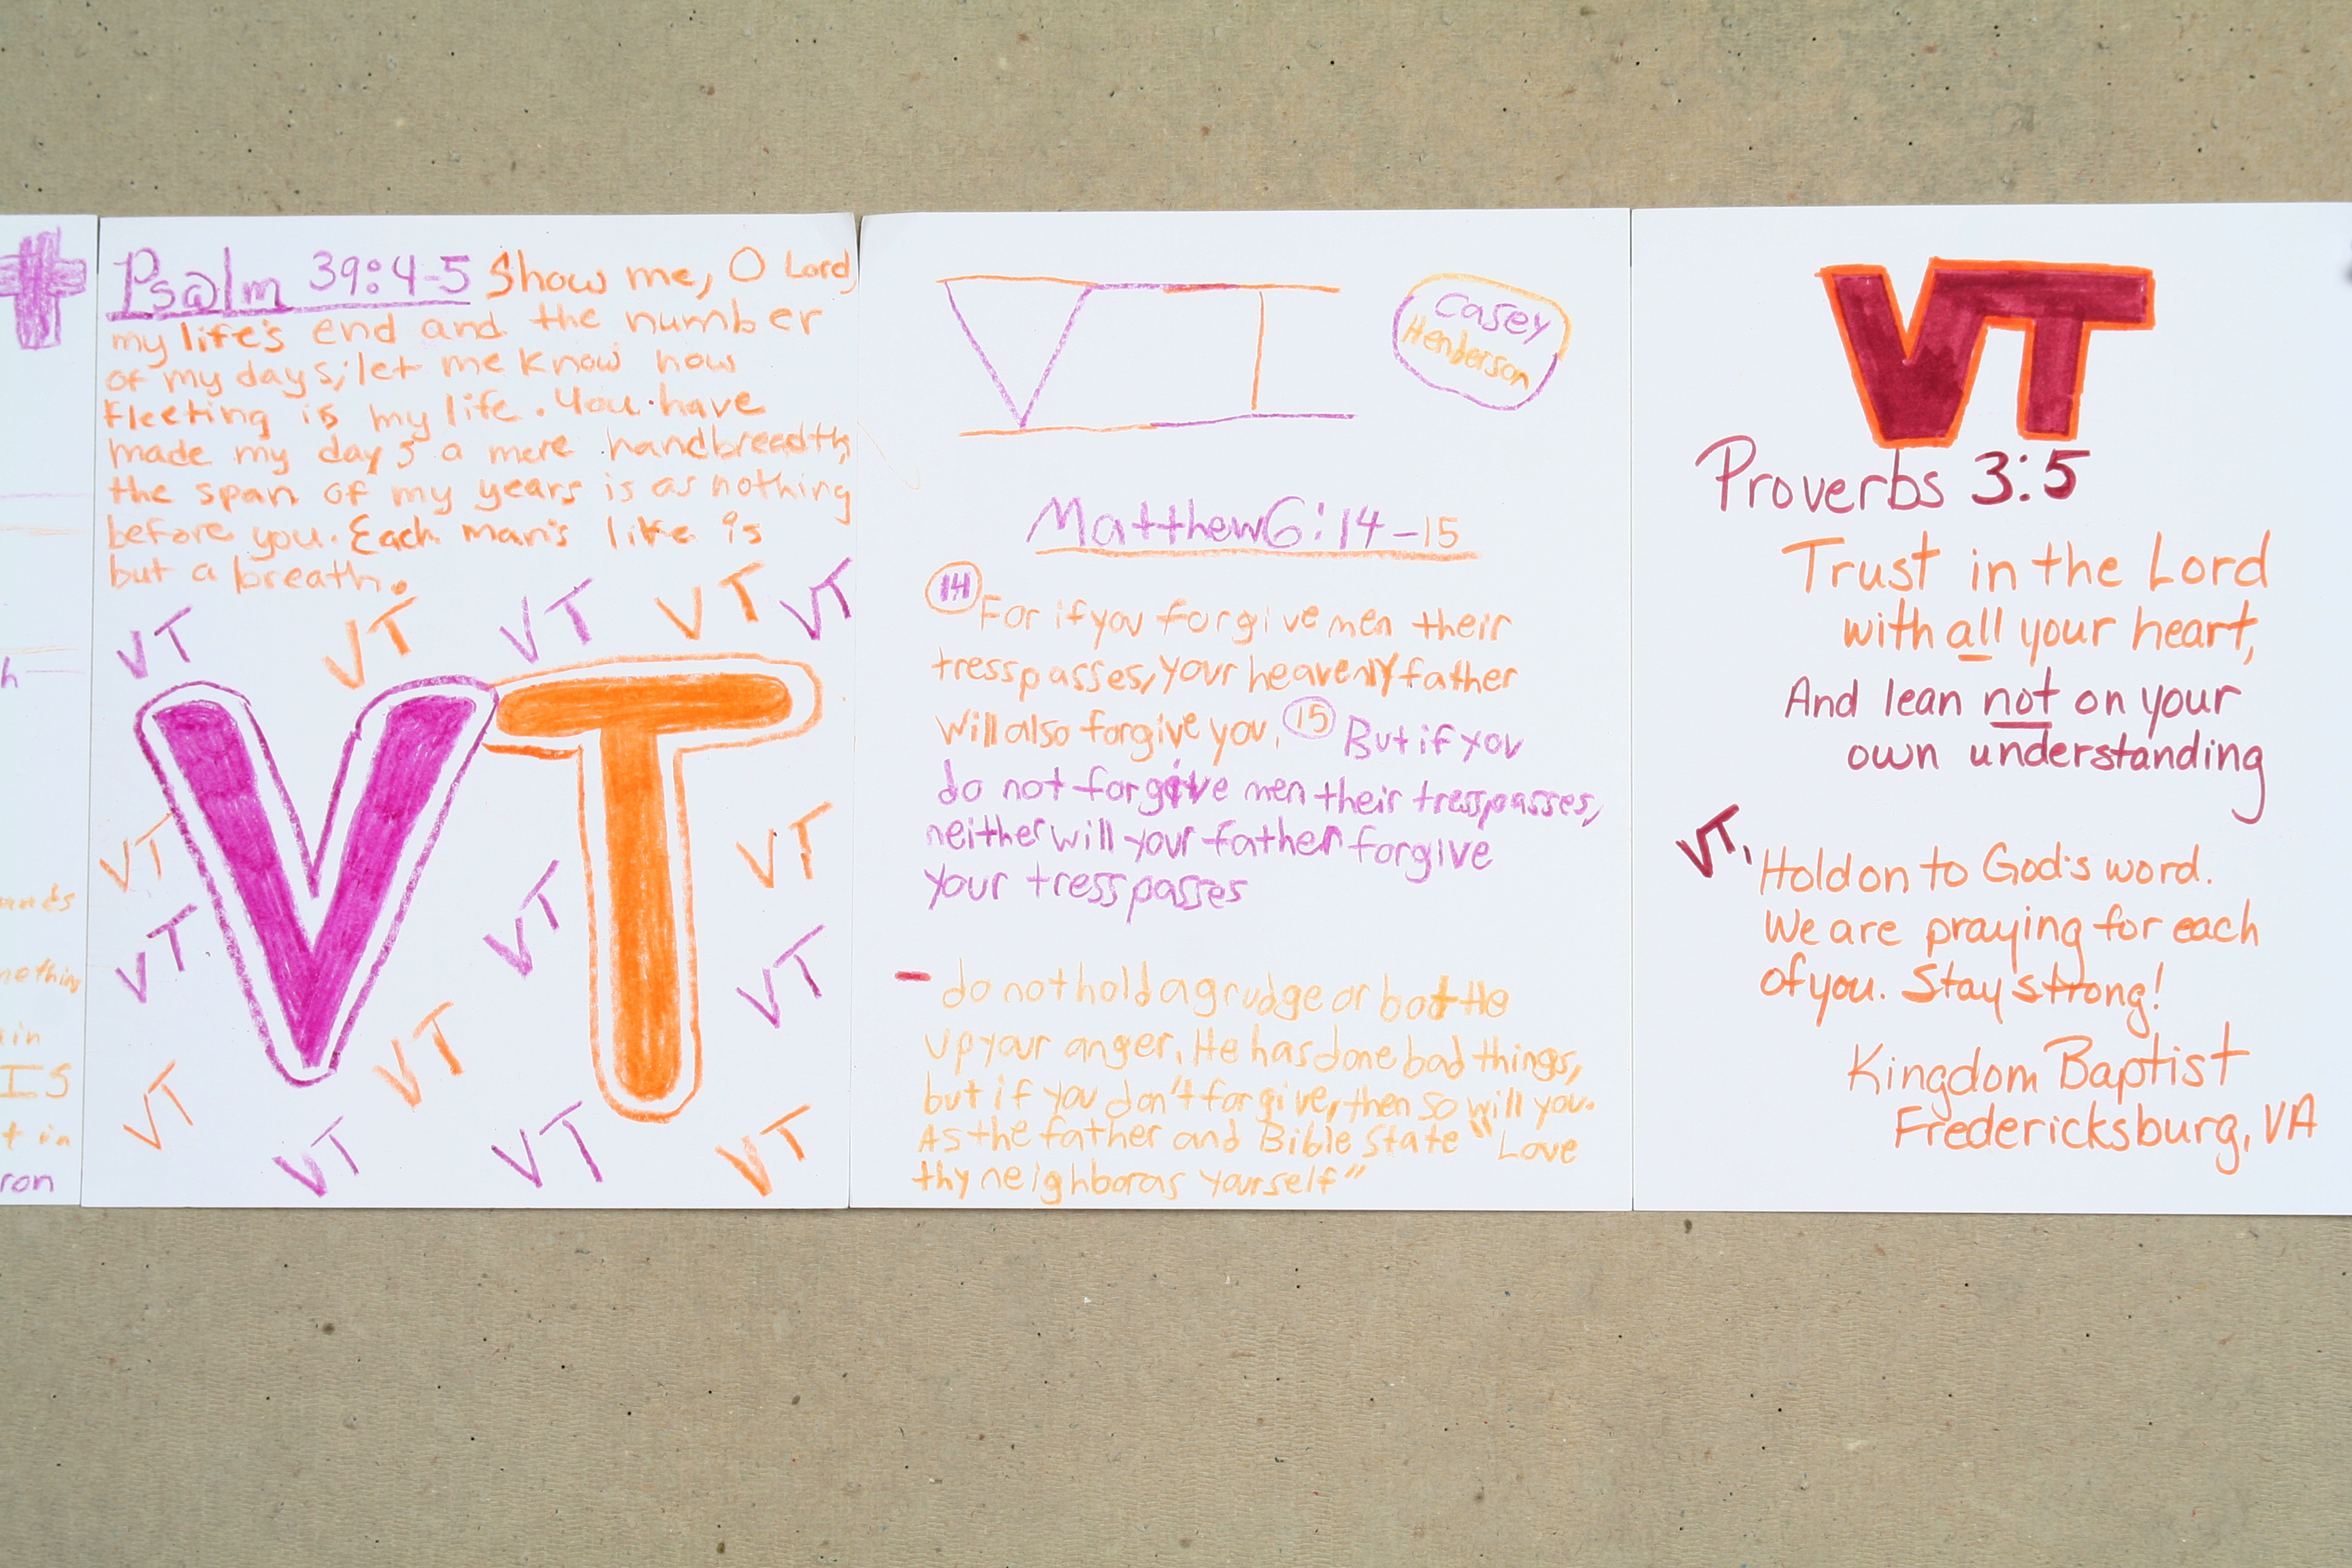 h
ands
nething
in
IS
t in
ron
Psalm 39:4-5 Show me, O Lord
my life's end and the number
of my days; let me know how
fleeting is my life. You have
made my days a mere handbreadth,
the span of my years is as nothing
before you. Each man's life is
but a breath.
VT VT VT VT VT
VT
VT VT
VT VT VT
VT VT
VT VT VT
VT
Casey
Henderson
Matthew 6:14-15
14 For if you forgive men their
tresspasses, your heavenly father
will also forgive you. 15 But if you
do not forgive men their tresspasses,
neither will your father forgive
your tresspasses
- do not hold a grudge or bottle
up your anger. He has done bad things,
but if you don't forgive, then so will you.
As the father and Bible State "Love
thy neighbor as yourself"
VT
Proverbs 3:5
Trust in the Lord
with all your heart,
And lean not on your
own understanding
VT,
Hold on to God's word.
We are praying for each
of you. Stay strong!
Kingdom Baptist
Fredericksburg, VA